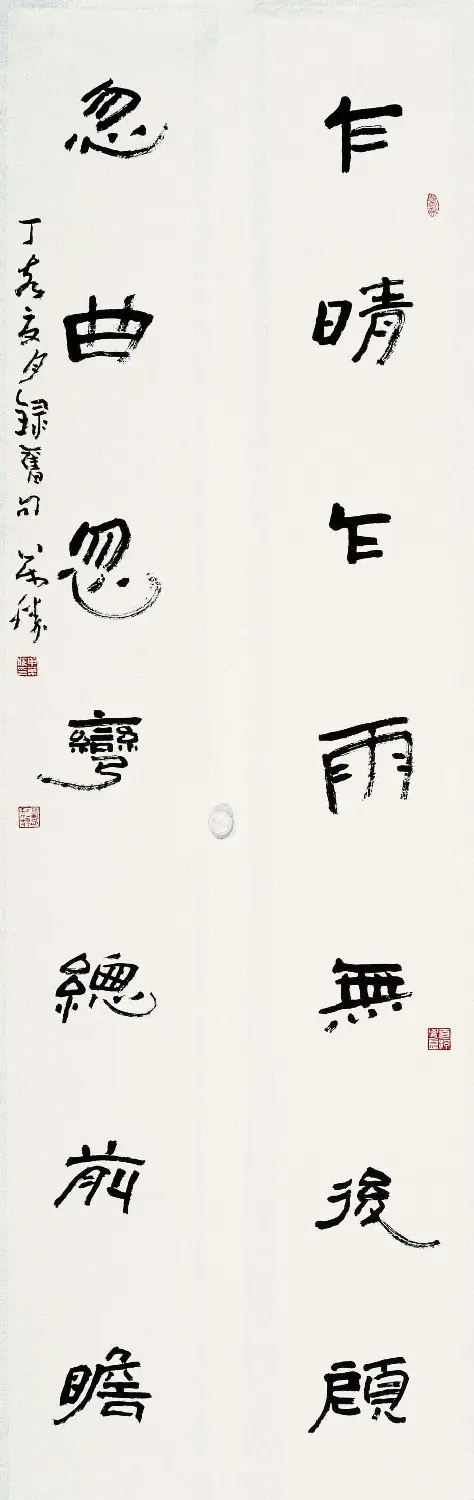 乍晴乍雨無後顧
忽曲忽彎總前瞻
丁亥夏夕錄舊句